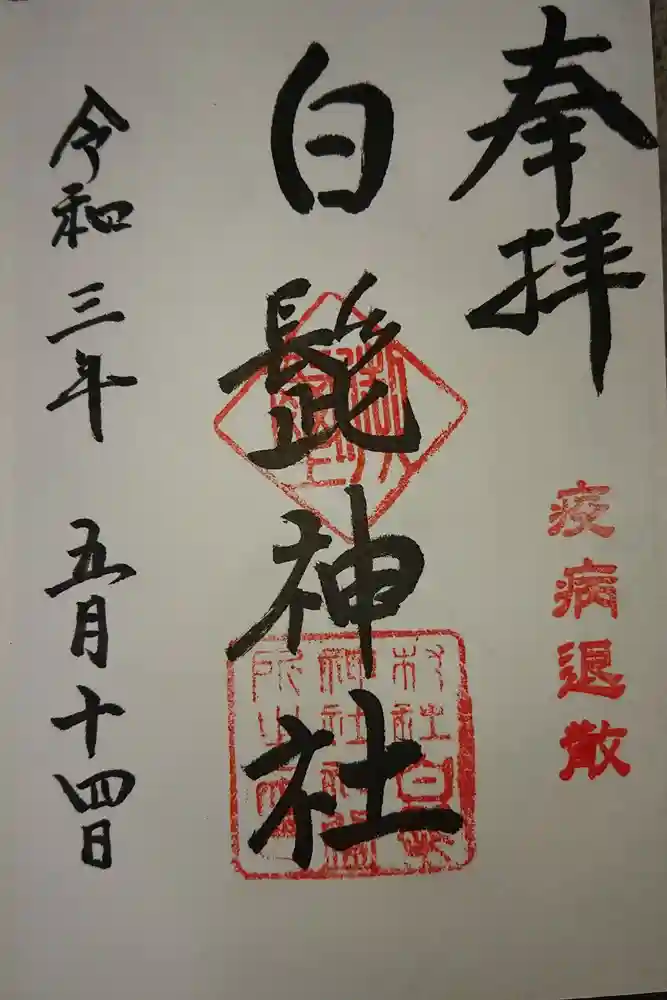 奉拝
疫病退散
白髭神社
令和三年 五月十四日